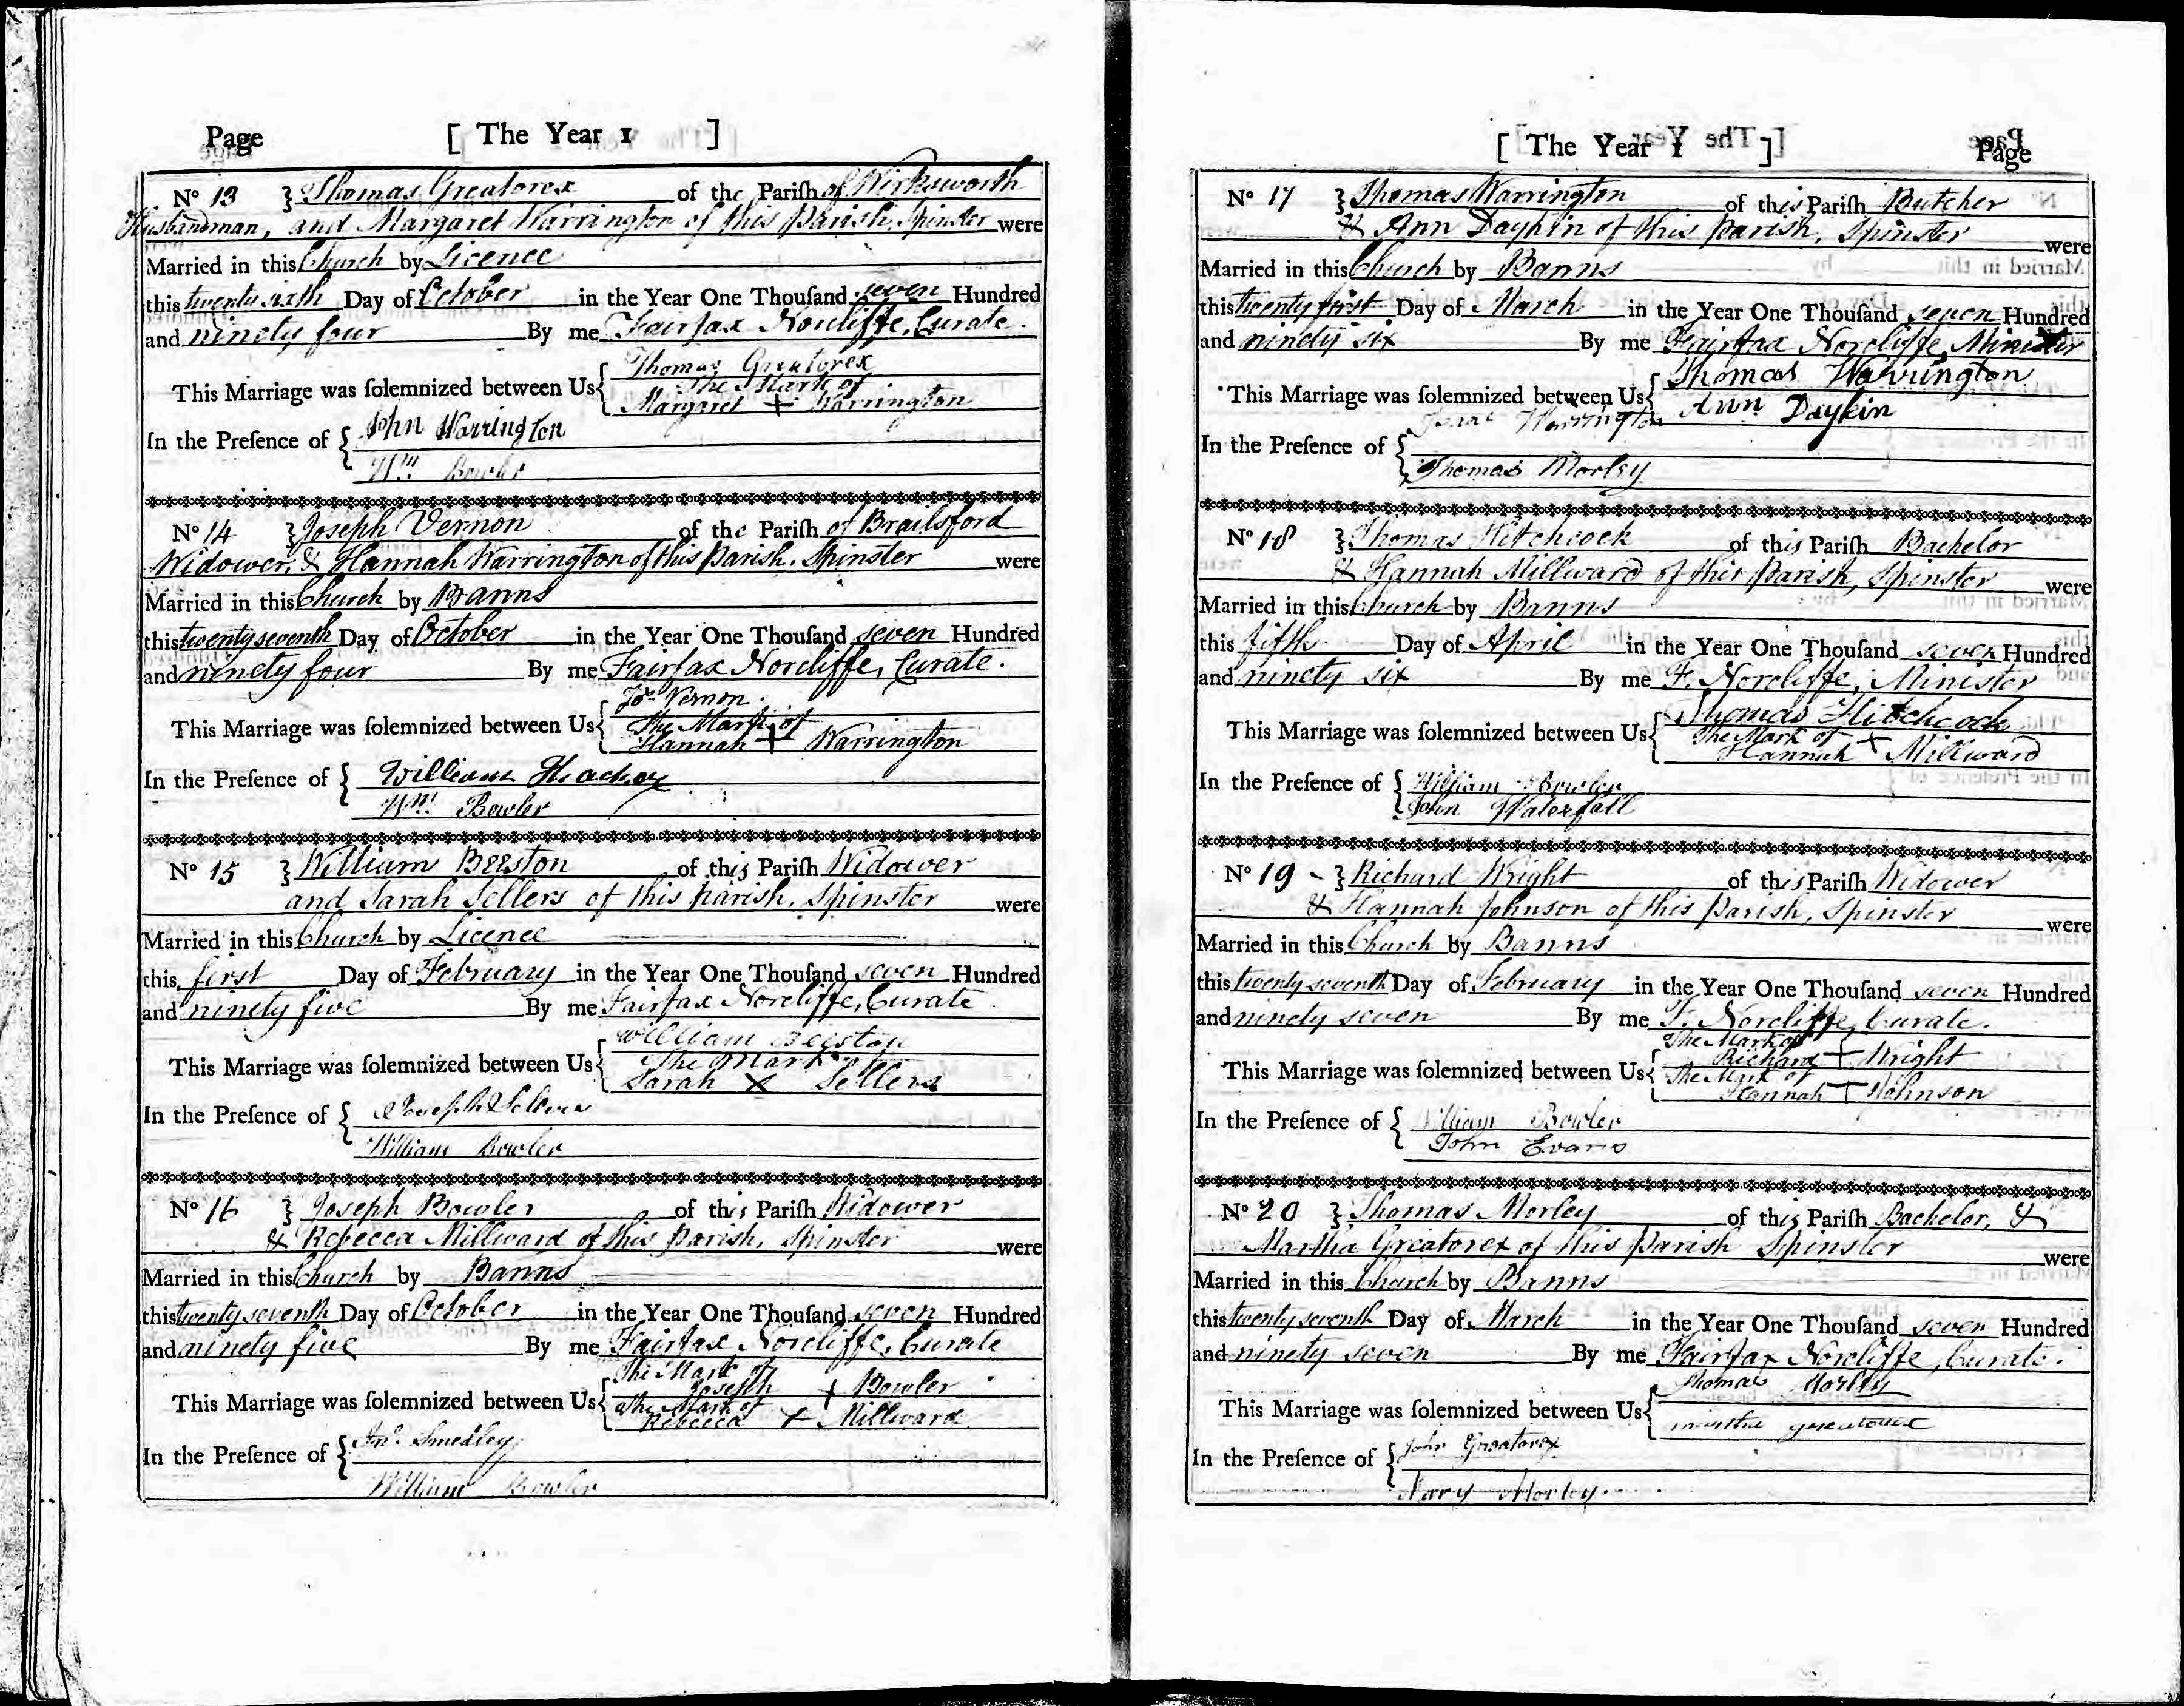 Page [ The Year 1 ]
No 13 } Thomas Greatorex of the Parish of Wirksworth
Husbandman, and Margaret Warrington of this Parish, Spinster were
Married in this Church by Licence
this twenty sixth Day of October in the Year One Thousand seven Hundred
and ninety four By me Fairfax Norcliffe, Curate.
Thomas Greatorex
This Marriage was solemnized between Us { The Mark of
Margaret + Warrington
In the Presence of { John Warrington
Wm. Bowler
No 14 } Joseph Vernon of the Parish of Brailsford
Widower, & Hannah Warrington of this Parish, Spinster were
Married in this Church by Banns
this twenty seventh Day of October in the Year One Thousand seven Hundred
and ninety four By me Fairfax Norcliffe, Curate.
Jos. Vernon
This Marriage was solemnized between Us { The Mark of
Hannah + Warrington
In the Presence of { William
Wm. Bowler
No 15 } William Beeston of this Parish Widower
and Sarah Sellers of this Parish, Spinster were
Married in this Church by Licence
this first Day of February in the Year One Thousand seven Hundred
and ninety five By me Fairfax Norcliffe, Curate
William Beeston
This Marriage was solemnized between Us { The Mark of
Sarah X Sellers
In the Presence of { Joseph
William Bowler
No 16 } Joseph Bowler of this Parish Widower
& Rebecca Millward of this Parish, Spinster were
Married in this Church by Banns
this twenty seventh Day of October in the Year One Thousand seven Hundred
and ninety five By me Fairfax Norcliffe, Curate
The Mark of
Joseph + Bowler
This Marriage was solemnized between Us { The Mark of
Rebecca X Millward
In the Presence of { Jno. Smedley
William Bowler
[ The Year 1 ] Page
No 17 } Thomas Warrington of this Parish Butcher
& Ann Daykin of this Parish, Spinster were
Married in this Church by Banns
this twenty first Day of March in the Year One Thousand seven Hundred
and ninety six By me Fairfax Norcliffe, Minister
This Marriage was solemnized between Us { Thomas Warrington
Ann Daykin
In the Presence of { Isaac Warrington
Thomas Morley
No 18 } Thomas Hitchcock of this Parish Bachelor
& Hannah Millward of this Parish, Spinster were
Married in this Church by Banns
this fifth Day of April in the Year One Thousand seven Hundred
and ninety six By me F. Norcliffe, Minister
Thomas Hitchcock
This Marriage was solemnized between Us { The Mark of
Hannah X Millward
In the Presence of { William Bowler
John Waterfall
No 19 } Richard Wright of this Parish Widower
& Hannah Johnson of this Parish, Spinster were
Married in this Church by Banns
this twenty seventh Day of February in the Year One Thousand seven Hundred
and ninety seven By me F. Norcliffe, Curate.
The Mark of
Richard + Wright
This Marriage was solemnized between Us { The Mark of
Hannah + Johnson
In the Presence of { William Bowler
John Evans
No 20 } Thomas Morley of this Parish Bachelor, &
Martha Greatorex of this Parish Spinster were
Married in this Church by Banns
this twenty seventh Day of March in the Year One Thousand seven Hundred
and ninety seven By me Fairfax Norcliffe, Curate.
Thomas Morley
This Marriage was solemnized between Us { martha greatorex
In the Presence of { John Greatorex
Mary Morley.